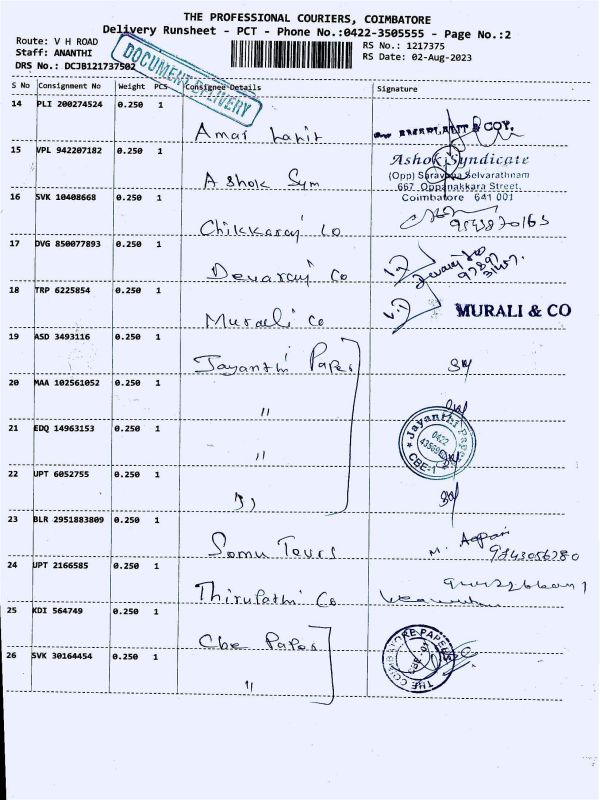 THE PROFESSIONAL COURIERS, COIMBATORE
Delivery Runsheet - PCT - Phone No.:0422-3505555 - Page No.:2
Route: V H ROAD
Staff: ANANTHI
DRS No.: DCJB121737502
RS No.: 1217375
RS Date: 02-Aug-2023
DOCUMENT DELIVERY
S No Consignment No Weight PCS Consignee Details Signature
14 PLI 200274524 0.250 1 Amar Lalit
15 VPL 942207182 0.250 1 Ashok Sym
Ashok Syndicate
(Opp) Saravana Selvarathnam
667, Oppanakkara Street,
Coimbatore 641 001
16 SVK 10408668 0.250 1 Chikkaraj Co
17 DVG 850077893 0.250 1 Devaraj Co
18 TRP 6225854 0.250 1 Murali Co MURALI & CO
19 ASD 3493116 0.250 1 Jayanthi Paper
20 MAA 102561052 0.250 1 "
21 EDQ 14963153 0.250 1 "
Jayanthi Paper
0422
CBE-1
22 UPT 6052755 0.250 1 "
23 BLR 2951883809 0.250 1 Somu Tours 9843056780
24 UPT 2166585 0.250 1 Thirupathi Co
25 KDI 564749 0.250 1 Cbe Paper
26 SVK 30164454 0.250 1 "